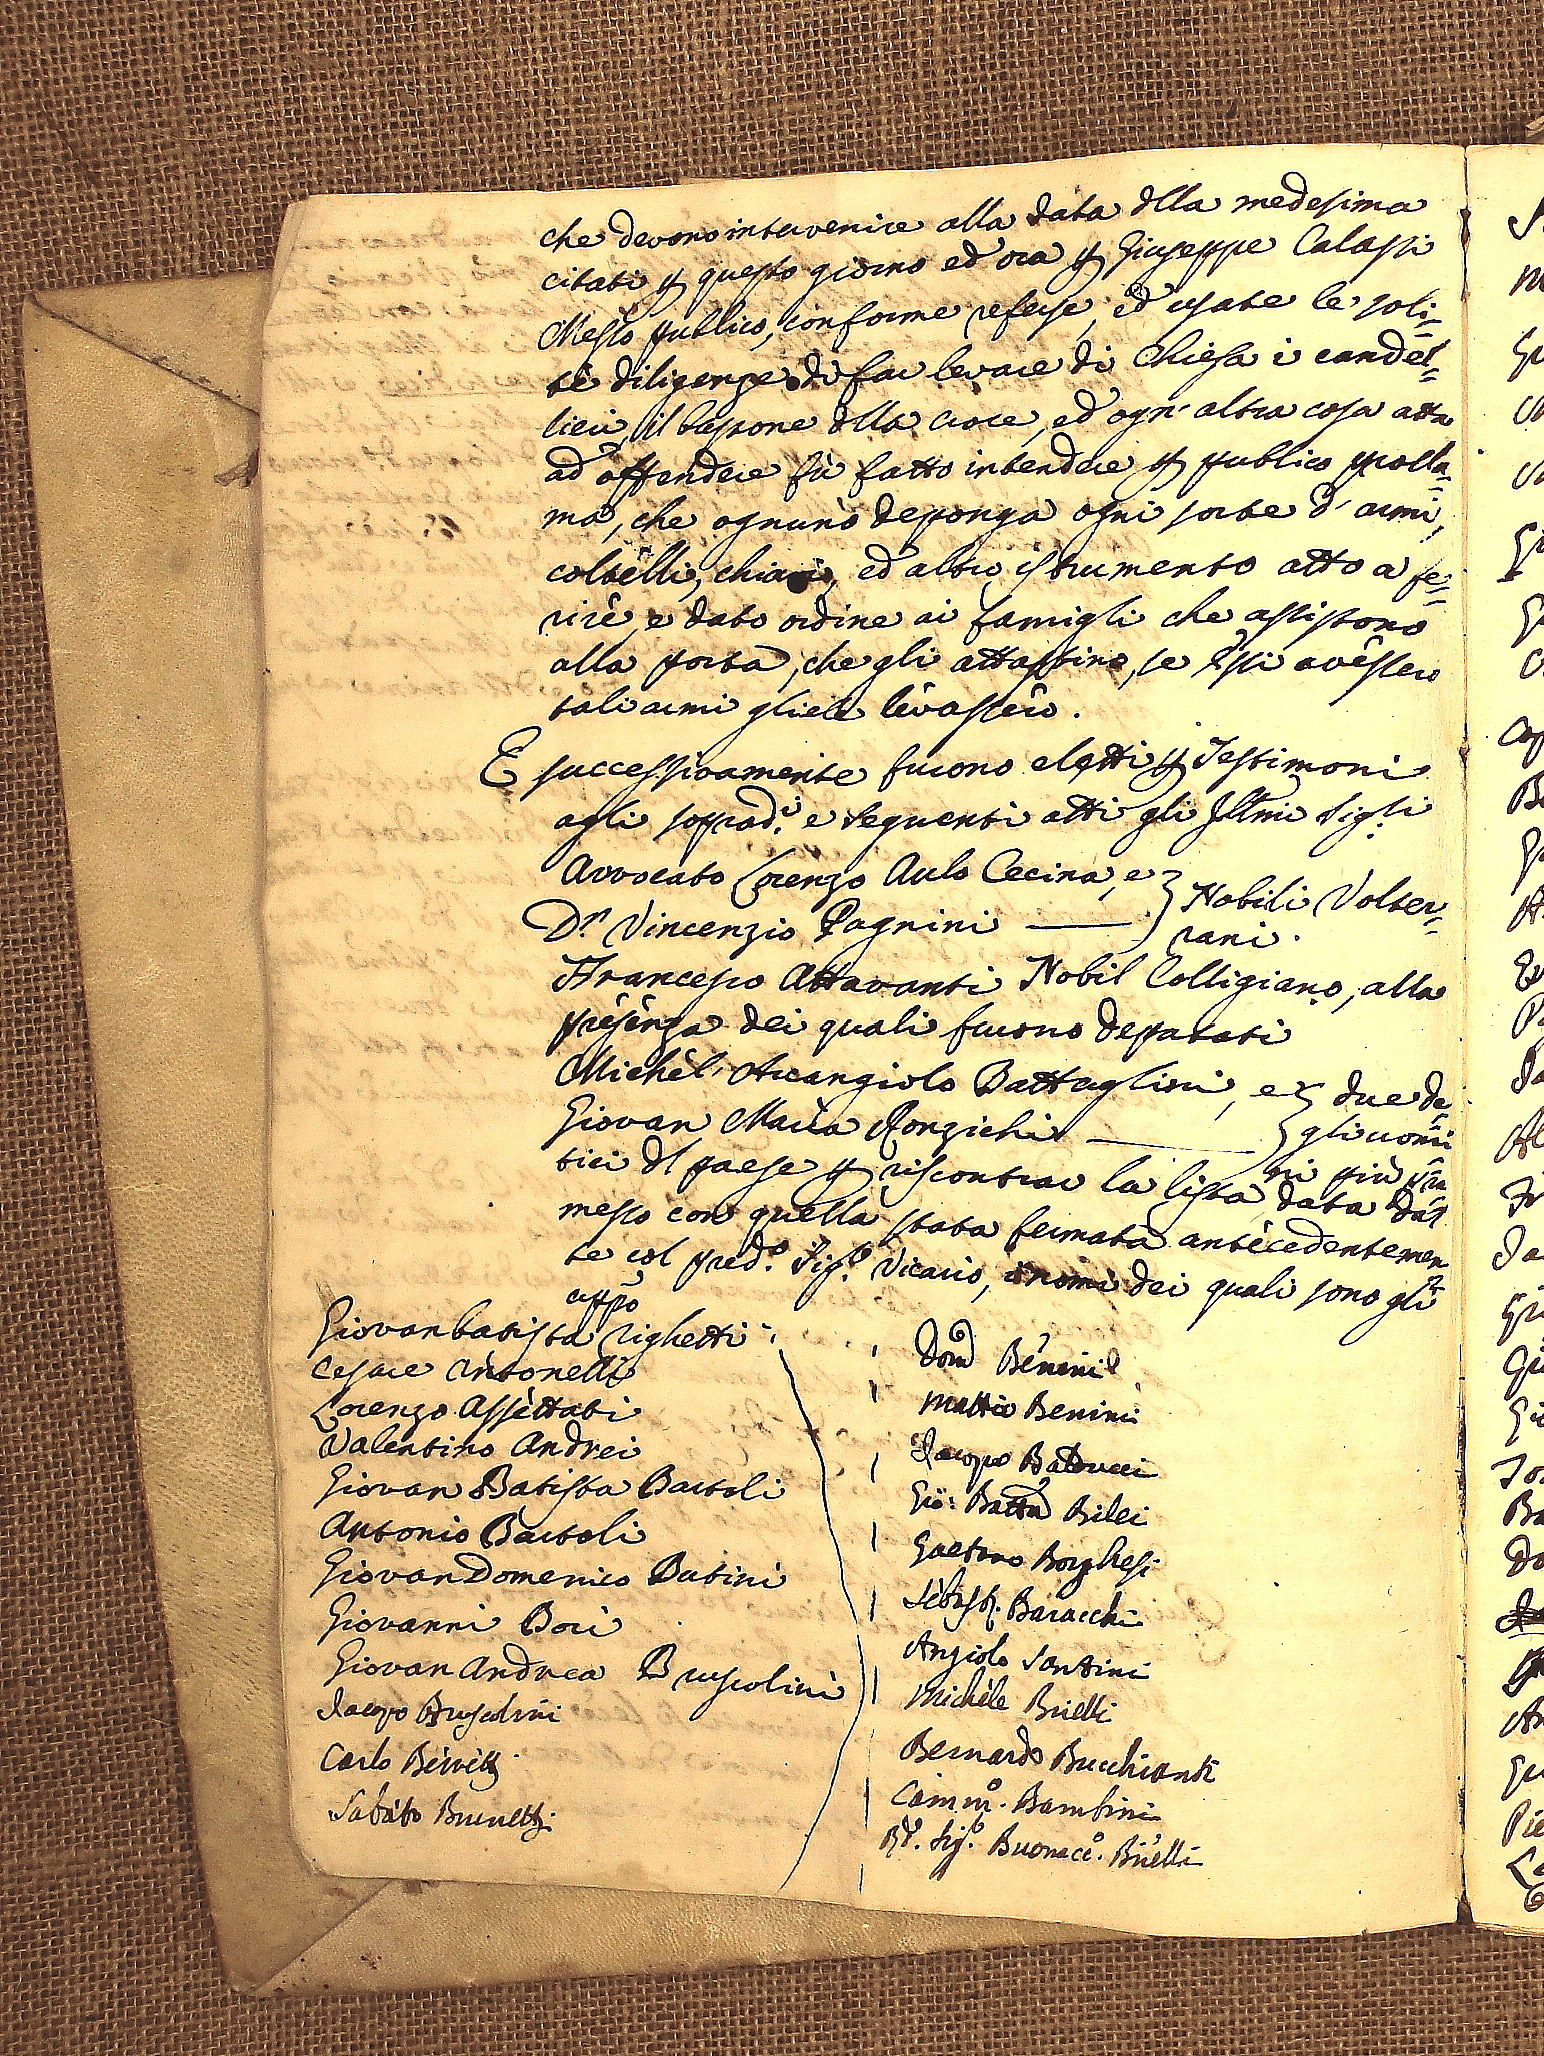 che devono intervenire alla data dlla medesima
citati p questo giorno ed ora p Giuseppe Calassi
Messo publico, conforme referse, ed usate le soli=
te diligenze di far levare di Chiesa i candel=
lieri, il bastone dlla croce, ed ogn' altra cosa atta
ad offendere fù fatto intendere p publico procla=
ma, che ognuno deponga ogni sorte d' armi,
coltelli, chiavi, ed altro istrumento atto a fe=
rire, e dato ordine ai famigli che assistono
alla porta, che gli attastino, se essi avessero
tali armi gliele levassero.
E successivamente furono eletti p Testimoni
agli soprad.i e seguenti atti gli Illmi Sig.li
Avvocato Lorenzo Aulo Cecina, e } Nobili Volter=
Dr. Vincenzio Pagnini } rani.
Francesco Attavanti Nobil Colligiano, alla
presenza dei quali furono deputati
Michel' Arcangiolo Battaglini, e } due de=
Giovan Maria Ronzichi } gli uomi
ni più pra
tici dl paese p riscontrar la lista data dal
messo con quella stata fermata antecedentemen
te col pred.o Sig.e Vicario, i nomi dei quali sono gli
appo
Giovanbatista Righetti
Cesare Antonelli
Lorenzo Assettati
Valentino Andrei
Giovan Batista Bartoli
Antonio Bartoli
Giovan Domenico Batini
Giovanni Bori
Giovan Andrea Bruscolini
Jacopo Bruscolini
Carlo
Sabato Brunetti
Dom.o Benini
Mattio Benini
Jacopo Balducci
Gio: Batta Bilei
Gaetano Borghesi
Sebast. Baracchi
Angiolo Santini
Michele Brielli
Bernardo Bucchianti
Camm.o Bambini
Rd. Sig.e Buonacc.o Brielli